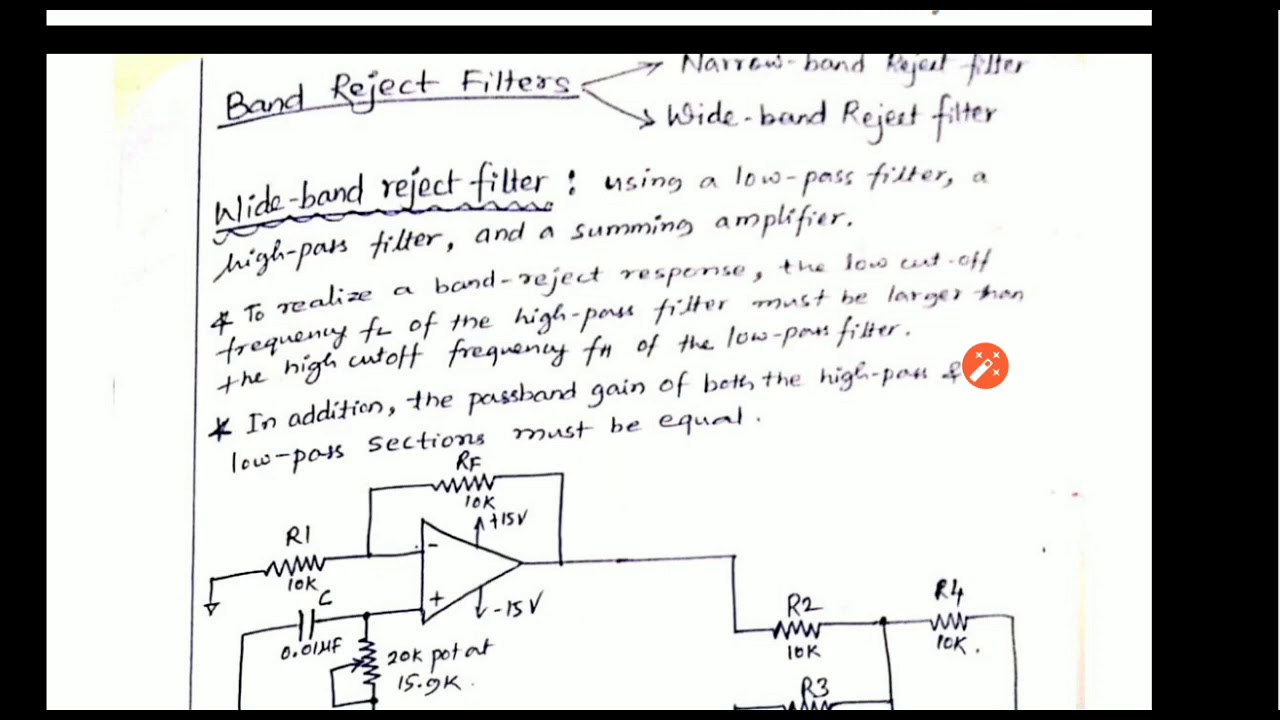 Narrow-band Reject filter
Band Reject Filters
Wide-band Reject filter
Wide-band reject filter : using a low-pass filter, a
high-pass filter, and a summing amplifier.
* To realize a band-reject response, the low cut-off
frequency fL of the high-pass filter must be larger than
the high cutoff frequency fH of the low-pass filter.
* In addition, the passband gain of both the high-pass &
low-pass sections must be equal.
RF
10K
+15V
R1
10K
-
+
-15V
C
0.01µF
20K pot at
15.9K.
R2
10K
R4
10K.
R3